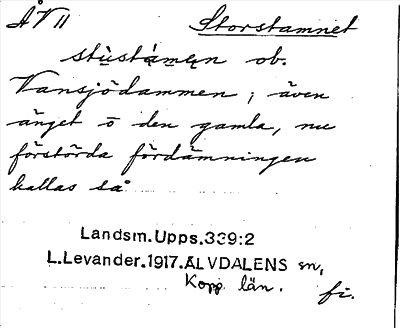 ÅV II Storstamnet
stùstámen ob.
Vansjödammen; även
änget o den gamla, nu
förstörda fördämningen
kallas så
Landsm.Upps.339:2
L.Levander.1917.ÄLVDALENS sn,
Kopp. län. fi.